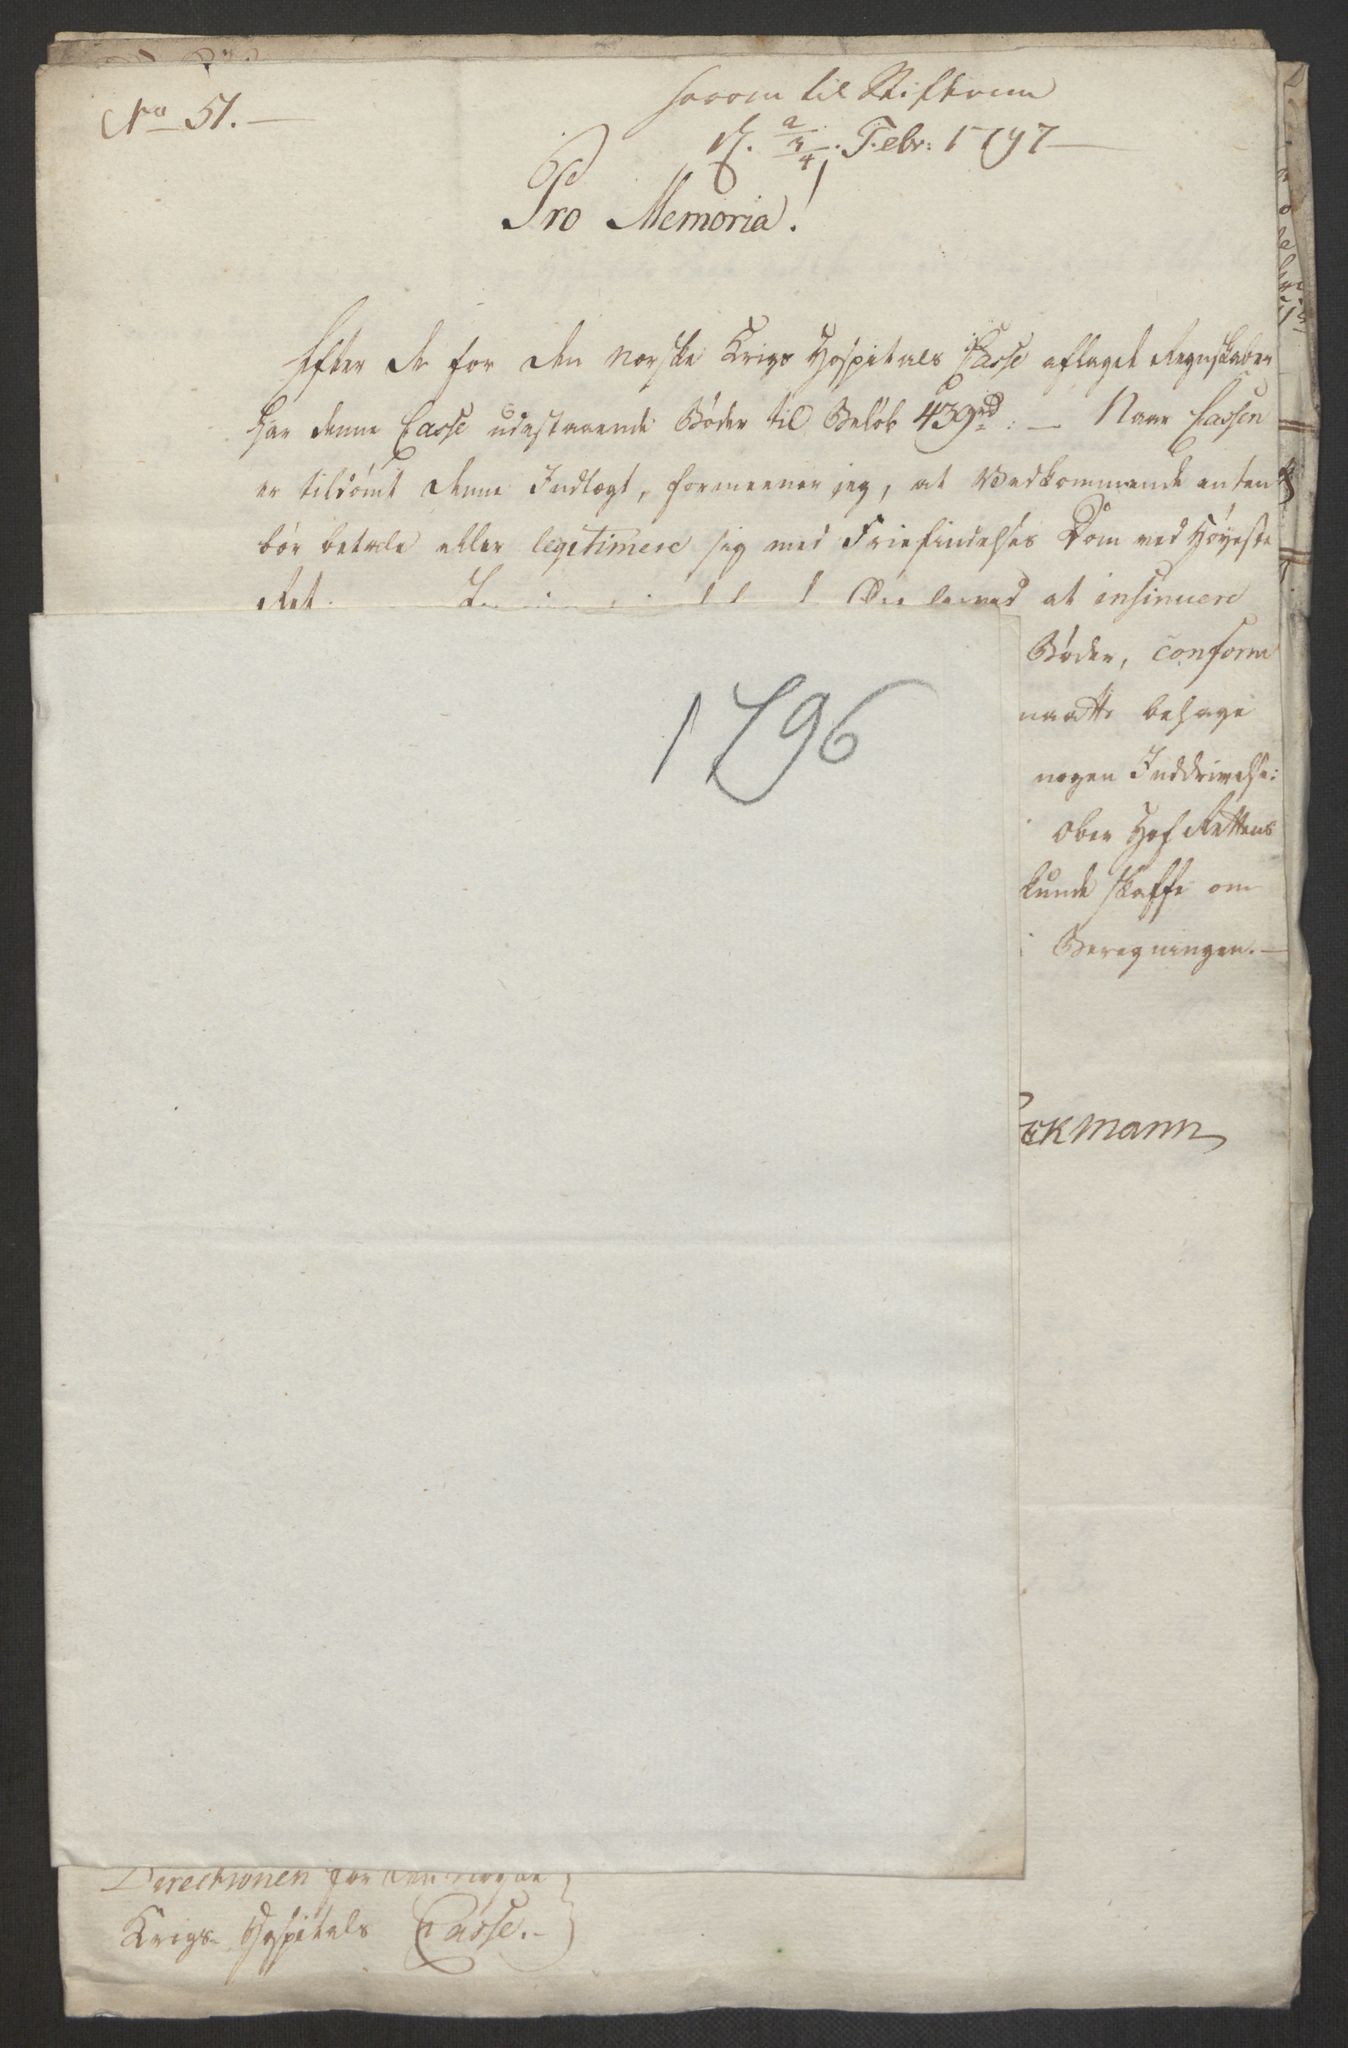 No 51.
til Stiftamt
d. 2/4 Febr: 1797
Pro Memoria!
Efter de for den norske Krigs Hospitals Casse aflagde Regnskaber
har denne Casse udestaaende Bøder til Beløb 439rd: — Naar Cassen
er tildømt denne Indtægt, formeener jeg, at Vedkommende enten
bør betale eller legetimere sig med Friefindelses Dom ved Høyeste
Ret. at insinuere
Bøder, conform
maatte behage
nogen Inddrivelse:
Ober Hof Rettens
kunde skaffe om
Beregningen.—
1796
ckmann
Derectionen for den Norske
Krigs Hospitals Casse.—